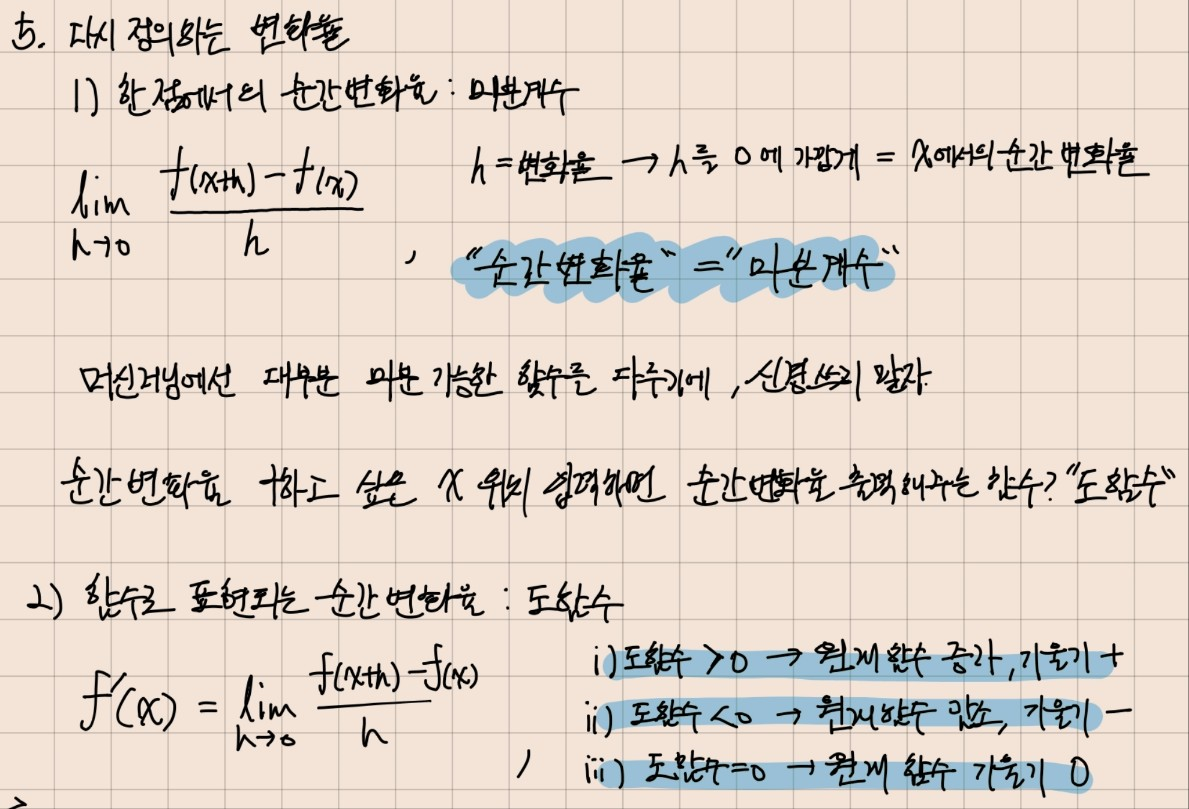 5. 다시 정의하는 변화율
1) 한 점에서의 순간변화율 : 미분계수
lim h→0 f(x+h)-f(x) / h , h = 변화율 → h를 0에 가깝게 = x에서의 순간 변화율
"순간변화율" = "미분계수"
머신러닝에선 대부분 미분 가능한 함수를 다루기에, 신경쓰지 말자.
순간변화율 구하고 싶은 x 위치 입력하면 순간변화율 출력해주는 함수? "도함수"
2) 함수로 표현되는 순간변화율 : 도함수
f'(x) = lim h→0 f(x+h)-f(x) / h ,
i) 도함수 > 0 → 원래 함수 증가, 기울기 +
ii) 도함수 < 0 → 원래함수 감소, 기울기 -
iii) 도함수=0 → 원래 함수 기울기 0